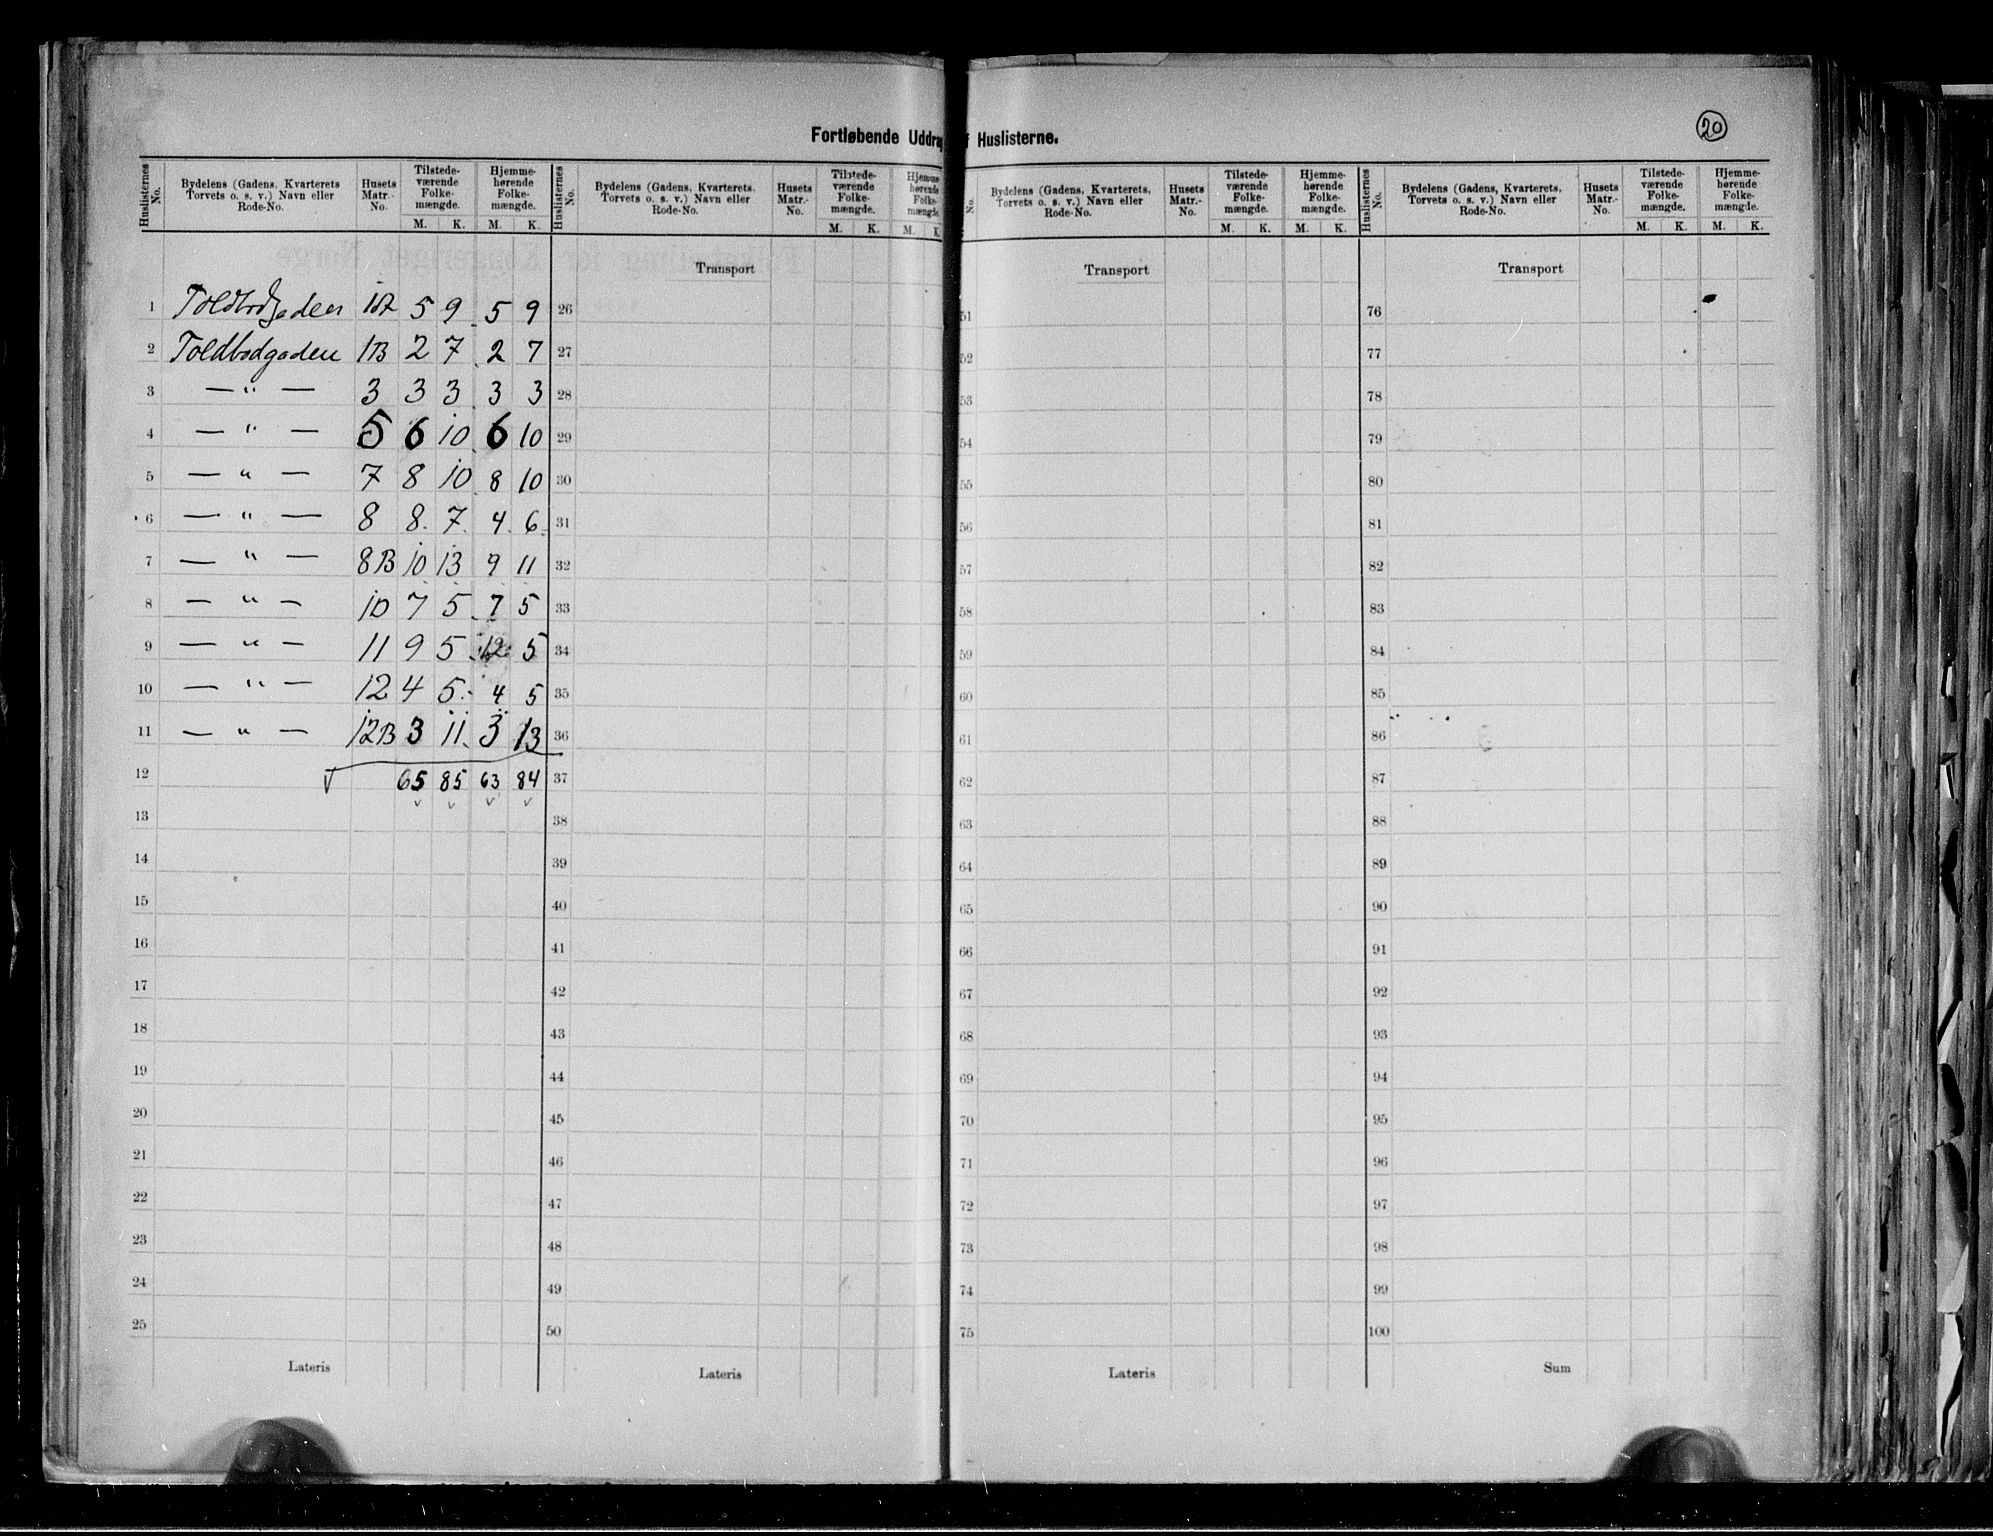 20
Fortløbende Uddrag f Huslisterne.
Huslisternes No. | Bydelens (Gadens, Kvarterets Torvets o. s. v.) Navn eller Rode-No. | Husets Matr.-No. | Tilstede-værende Folke-mængde. M. K. | Hjemme-hørende Folke-mængde. M. K.
1 Toldbodgaden 5 9 5 9
2 Toldbodgaden 1B 2 7 2 7
3 — " — 3 3 3 3 3
4 — " — 5 6 10 6 10
5 — " — 7 8 10 8 10
6 — " — 8 8 7 4 6
7 — " — 8B 10 13 9 11
8 — " — 10 7 5 7 5
9 — " — 11 9 5 12 5
10 — " — 12 4 5 4 5
11 — " — 12B 3 11 3 13
12 65 85 63 84
13
14
15
16
17
18
19
20
21
22
23
24
25
Lateris
Huslisternes No. | Bydelens (Gadens, Kvarterets, Torvets o. s. v.) Navn eller Rode-No. | Husets Matr.-No. | Tilstede-værende Folke-mængde. M. K. | Hjemme hørende Folke-mængde M. K
Transport
26
27
28
29
30
31
32
33
34
35
36
37
38
39
40
41
42
43
44
45
46
47
48
49
50
Lateris
No. | Bydelens (Gadens, Kvarterets, Torvets o. s. v.) Navn eller Rode-No. | Husets Matr.-No. | Tilstede-værende Folke-mængde. M. K. | Hjemme-hørende Folke-mængde. M. K.
Transport
51
52
53
54
55
56
57
58
59
60
61
62
63
64
65
66
67
68
69
70
71
72
73
74
75
Lateris
Huslisternes No. | Bydelens (Gadens, Kvarterets, Torvets o. s. v.) Navn eller Rode-No. | Husets Matr.-No. | Tilstede-værende Folke-mængde. M. K. | Hjemme-hørende Folke-mængde. M. K.
Transport
76
77
78
79
80
81
82
83
84
85
86
87
88
89
90
91
92
93
94
95
96
97
98
99
100
Sum